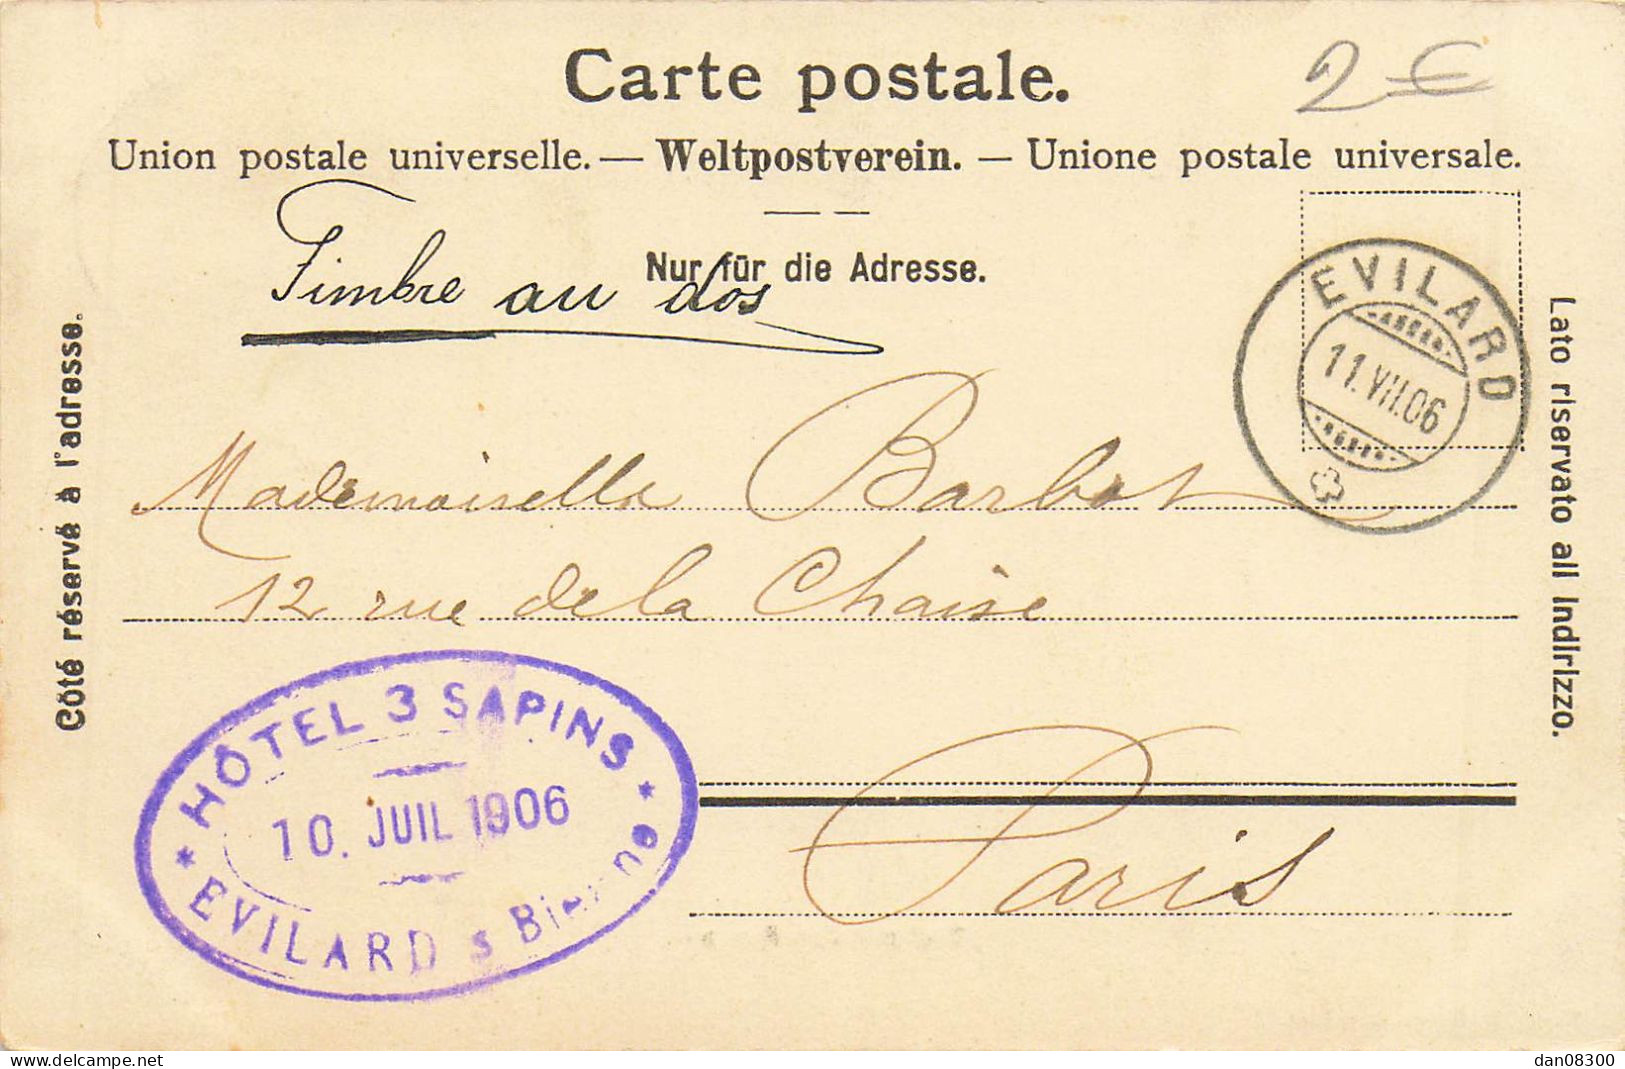 Carte postale.
2 €
Union postale universelle. — Weltpostverein. — Unione postale universale.
Nur für die Adresse.
Timbre au dos
Côté réservé à l'adresse.
Lato riservato all Indirizzo.
EVILARD
11.VII.06
Mademoiselle Barbot
12 rue de la Chaise
Paris
HÔTEL 3 SAPINS
10. JUIL 1906
EVILARD s Bienne
delcampe.net
dan08300